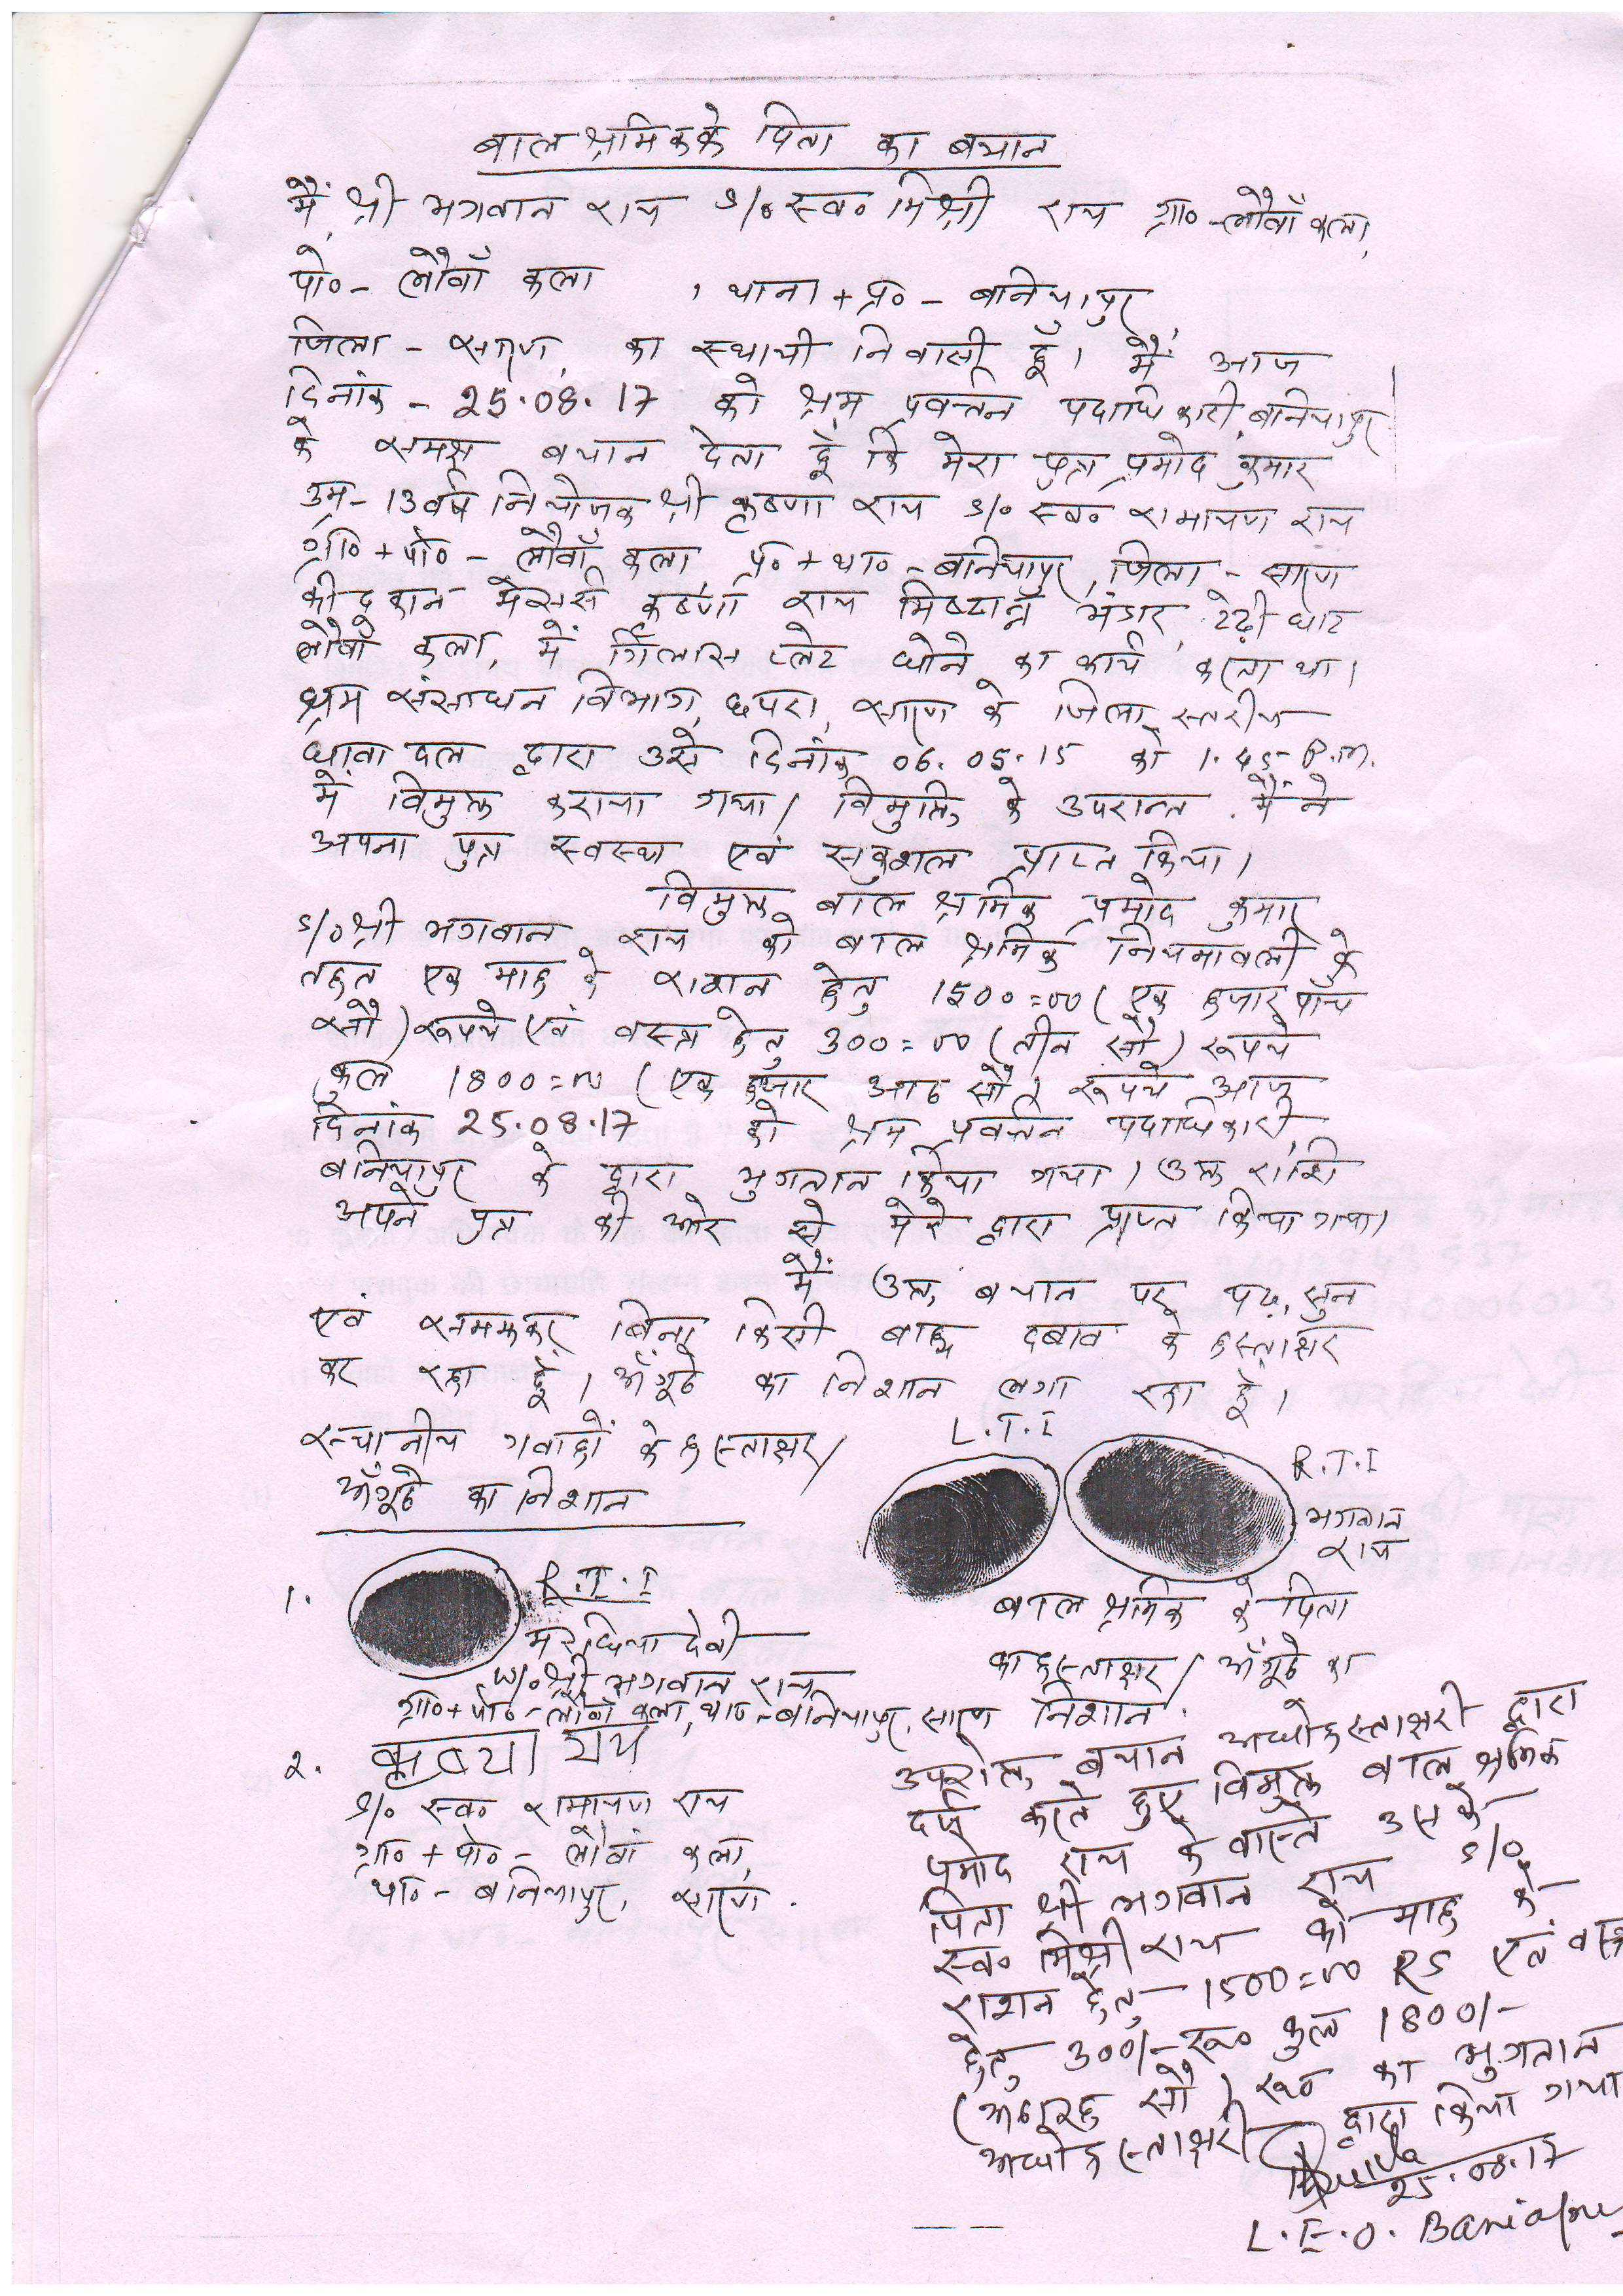 बाल श्रमिक के पिता का बयान
मैं, श्री भगवान राय S/o स्व० मिश्री राय ग्रा०-लौवाँ कला,
पो०- लौवाँ कला , थाना + प्र० - बनियापुर,
जिला - सारण, का स्थायी निवासी हूँ। मैं आज
दिनांक - 25.08.17 को श्रम प्रवर्त्तन पदाधिकारी, बनियापुर
के समक्ष बयान देता हूँ कि मेरा पुत्र प्रमोद कुमार
उम्र- 13 वर्ष नियोजक श्री कृष्णा राय S/o स्व० रामायण राय
ग्रा० + पो० - लौवाँ कला, प्र० + था० - बनियापुर, जिला - सारण
की दूकान मेसर्स कृष्णा राय मिष्टान्न भंडार, टेढ़ी घाट
लौवाँ कला, में गिलास प्लेट धोने का कार्य करता था।
श्रम संसाधन विभाग, छपरा, सारण के जिला स्तरीय
धावा दल द्वारा उसे दिनांक 06.05.15 को 1.45 P.m.
में विमुक्त कराया गया। विमुक्ति के उपरान्त मैंने
अपना पुत्र स्वस्थ एवं सकुशल प्राप्त किया।
विमुक्त बाल श्रमिक प्रमोद कुमार
S/o श्री भगवान राय को बाल श्रमिक नियमावली के
तहत एक माह के राशन हेतु 1500=00 (एक हजार पाँच
सौ) रूपये एवं वस्त्र हेतु 300=00 (तीन सौ) रूपये
कुल 1800=00 (एक हजार आठ सौ) रूपये आज
दिनांक 25.08.17 को श्रम प्रवर्त्तन पदाधिकारी,
बनियापुर के द्वारा भुगतान किया गया। उक्त राशि
अपने पुत्र की ओर से मेरे द्वारा प्राप्त किया गया।
मैं उक्त बयान पर पढ़, सुन
एवं समझकर बिना किसी बाह्य दबाव के हस्ताक्षर
कर रहा हूँ / अँगूठे का निशान लगा रहा हूँ।
स्थानीय गवाहों के हस्ताक्षर/
अँगूठे का निशान
L.T.I
R.T.I
भगवान
राय
बाल श्रमिक के पिता
का हस्ताक्षर / अँगूठे का
निशान
1.
R.T.I
देवी
W/o श्री भगवान राय
ग्रा० + पो० - लौवाँ कला, था० - बनियापुर, सारण
2. कृष्णा राय
S/o स्व० रामायण राय
ग्रा० + पो० - लौवाँ कला,
था० - बनियापुर, सारण.
उपरोक्त बयान अधोहस्ताक्षरी द्वारा
दर्ज करते हुए विमुक्त बाल श्रमिक
प्रमोद राय के वास्ते उसके
पिता श्री भगवान राय S/o
स्व० मिश्री राय को माह के
राशन हेतु 1500=00 RS एवं वस्त्र
हेतु 300/- रू० कुल 1800/-
(अठारह सौ) रू० का भुगतान
अधोहस्ताक्षरी द्वारा किया गया
25.08.17
L.E.O. Baniapur